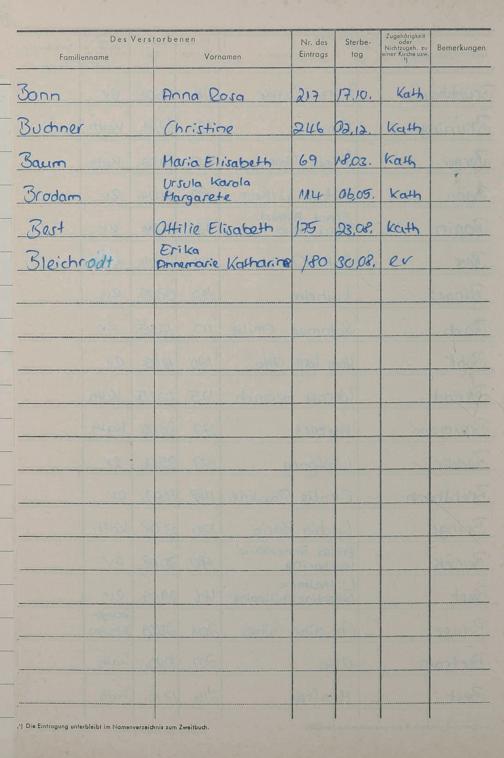 Des Verstorbenen
Familienname Vornamen Nr. des Eintrags Sterbe- tag Zugehörigkeit oder Nichtzugeh. zu einer Kirche usw. ¹) Bemerkungen
Bonn Anna Rosa 217 17.10. Kath
Buchner Christine 246 02.12. Kath
Baum Maria Elisabeth 69 18.03. Kath
Ursula Karola
Brodam Margarete 114 06.05. Kath
Best Ottilie Elisabeth 175 23.08. Kath
Erika
Bleichrodt Annemarie Katharine 180 30.08. ev
¹) Die Eintragung unterbleibt im Namenverzeichnis zum Zweitbuch.